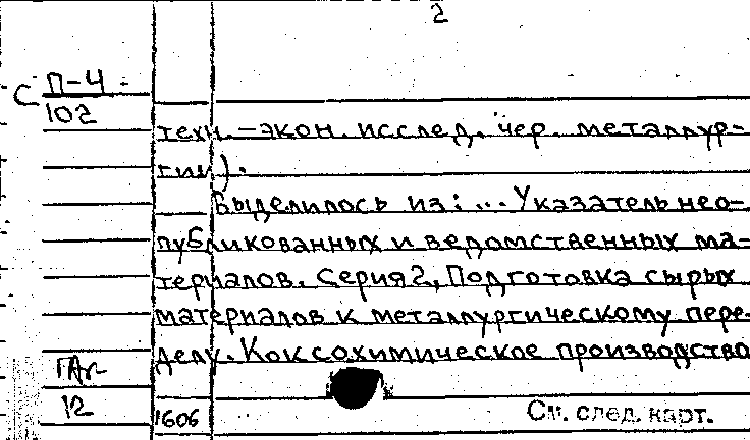 2
С П-4
102
техн.-экон. исслед. чер. металлур-
гии).
Выделилось из: ... Указатель нео-
публикованных и ведомственных ма-
териалов. Серия 2, Подготовка сырых
материалов к металлургическому пере-
делу. Коксохимическое производство
12
1606
См. след. карт.